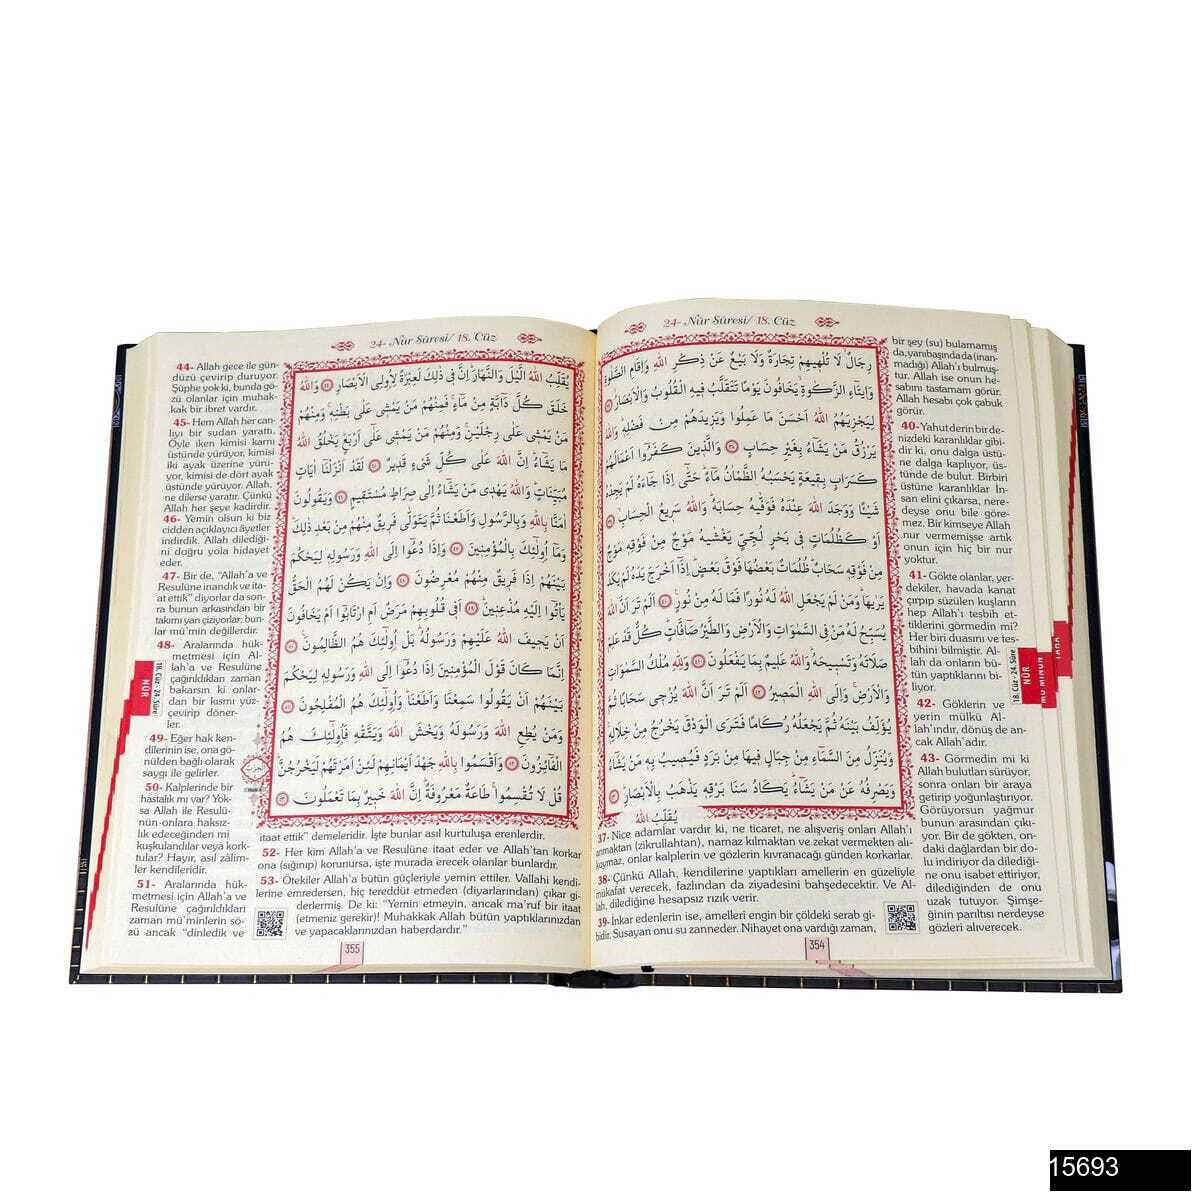 24- Nûr Sûresi/ 18. Cüz
رِجَالٌ لَا تُلْهِيهِمْ تِجَارَةٌ وَلَا بَيْعٌ عَنْ ذِكْرِ اللّٰهِ وَاِقَامِ الصَّلٰوةِ
وَاِيتَاءِ الزَّكٰوةِ يَخَافُونَ يَوْمًا تَتَقَلَّبُ فِيهِ الْقُلُوبُ وَالْاَبْصَارُ
لِيَجْزِيَهُمُ اللّٰهُ اَحْسَنَ مَا عَمِلُوا وَيَزِيدَهُمْ مِنْ فَضْلِهِ وَاللّٰهُ
يَرْزُقُ مَنْ يَشَاءُ بِغَيْرِ حِسَابٍ وَالَّذِينَ كَفَرُوا اَعْمَالُهُمْ
كَسَرَابٍ بِقِيعَةٍ يَحْسَبُهُ الظَّمْاٰنُ مَاءً حَتّٰى اِذَا جَاءَهُ لَمْ يَجِدْهُ
شَيْئًا وَوَجَدَ اللّٰهَ عِنْدَهُ فَوَفّٰيهُ حِسَابَهُ وَاللّٰهُ سَرِيعُ الْحِسَابِ
اَوْ كَظُلُمَاتٍ فِى بَحْرٍ لُجِّيٍّ يَغْشٰيهُ مَوْجٌ مِنْ فَوْقِهِ مَوْجٌ
مِنْ فَوْقِهِ سَحَابٌ ظُلُمَاتٌ بَعْضُهَا فَوْقَ بَعْضٍ اِذَا اَخْرَجَ يَدَهُ لَمْ يَكَدْ
يَرٰيهَا وَمَنْ لَمْ يَجْعَلِ اللّٰهُ لَهُ نُورًا فَمَا لَهُ مِنْ نُورٍ اَلَمْ تَرَ اَنَّ اللّٰهَ
يُسَبِّحُ لَهُ مَنْ فِى السَّمٰوَاتِ وَالْاَرْضِ وَالطَّيْرُ صَافَّاتٍ كُلٌّ قَدْ عَلِمَ
صَلَاتَهُ وَتَسْبِيحَهُ وَاللّٰهُ عَلِيمٌ بِمَا يَفْعَلُونَ وَلِلّٰهِ مُلْكُ السَّمٰوَاتِ
وَالْاَرْضِ وَاِلَى اللّٰهِ الْمَصِيرُ اَلَمْ تَرَ اَنَّ اللّٰهَ يُزْجِى سَحَابًا ثُمَّ
يُؤَلِّفُ بَيْنَهُ ثُمَّ يَجْعَلُهُ رُكَامًا فَتَرَى الْوَدْقَ يَخْرُجُ مِنْ خِلَالِهِ
وَيُنَزِّلُ مِنَ السَّمَاءِ مِنْ جِبَالٍ فِيهَا مِنْ بَرَدٍ فَيُصِيبُ بِهِ مَنْ يَشَاءُ
وَيَصْرِفُهُ عَنْ مَنْ يَشَاءُ يَكَادُ سَنَا بَرْقِهِ يَذْهَبُ بِالْاَبْصَارِ
يُقَلِّبُ اللّٰهُ
37- Nice adamlar vardır ki, ne ticaret, ne alışveriş onları Allah'ı
anmaktan (zikrullahtan), namaz kılmaktan ve zekat vermekten alı-
koymaz, onlar kalplerin ve gözlerin kıvranacağı günden korkarlar.
38- Çünkü Allah, kendilerine yaptıkları amellerin en güzeliyle
mükafat verecek, fazlından da ziyadesini bahşedecektir. Ve Al-
lah, dilediğine hesapsız rızık verir.
39- İnkar edenlerin ise, amelleri engin bir çöldeki serab gi-
bidir. Susayan onu su zanneder. Nihayet ona vardığı zaman,
bir şey (su) bulamamış
da, yanıbaşında da (inan-
madığı) Allah'ı bulmuş-
tur. Allah ise onun he-
sabını tastamam görür.
Allah hesabı çok çabuk
görür.
40- Yahut derin bir de-
nizdeki karanlıklar gibi-
dir ki, onu dalga üstü-
ne dalga kaplıyor, üs-
tünde de bulut. Birbiri
üstüne karanlıklar İn-
san elini çıkarsa, nere-
deyse onu bile göre-
mez. Bir kimseye Allah
nur vermemişse artık
onun için hiç bir nur
yoktur.
41- Gökte olanlar, yer-
dekiler, havada kanat
çırpıp süzülen kuşların
hep Allah'ı tesbih et-
tiklerini görmedin mi?
Her biri duasını ve tes-
bihini bilmiştir. Al-
lah da onların bü-
tün yaptıklarını bi-
liyor.
42- Göklerin ve
yerin mülkü Al-
lah'ındır, dönüş de an-
cak Allah'adır.
43- Görmedin mi ki
Allah bulutları sürüyor,
sonra onları bir araya
getirip yoğunlaştırıyor.
Görüyorsun yağmur
bunun arasından çıkı-
yor. Bir de gökten, on-
daki dağlardan bir do-
lu indiriyor da dilediği-
ne onu isabet ettiriyor,
dilediğinden de onu
uzak tutuyor. Şimşe-
ğinin parıltısı nerdeyse
gözleri alıverecek.
18. Cüz - 24. Sûre
NÛR
MÜ'MİNÛN
TÂHÂ
354
24- Nûr Sûresi/ 18. Cüz
يُقَلِّبُ اللّٰهُ الَّيْلَ وَالنَّهَارَ اِنَّ فِى ذٰلِكَ لَعِبْرَةً لِاُولِى الْاَبْصَارِ وَاللّٰهُ
خَلَقَ كُلَّ دَابَّةٍ مِنْ مَاءٍ فَمِنْهُمْ مَنْ يَمْشِى عَلٰى بَطْنِهِ وَمِنْهُمْ
مَنْ يَمْشِى عَلٰى رِجْلَيْنِ وَمِنْهُمْ مَنْ يَمْشِى عَلٰى اَرْبَعٍ يَخْلُقُ اللّٰهُ
مَا يَشَاءُ اِنَّ اللّٰهَ عَلٰى كُلِّ شَىْءٍ قَدِيرٌ لَقَدْ اَنْزَلْنَا اٰيَاتٍ
مُبَيِّنَاتٍ وَاللّٰهُ يَهْدِى مَنْ يَشَاءُ اِلٰى صِرَاطٍ مُسْتَقِيمٍ وَيَقُولُونَ
اٰمَنَّا بِاللّٰهِ وَبِالرَّسُولِ وَاَطَعْنَا ثُمَّ يَتَوَلّٰى فَرِيقٌ مِنْهُمْ مِنْ بَعْدِ ذٰلِكَ
وَمَا اُولٰئِكَ بِالْمُؤْمِنِينَ وَاِذَا دُعُوا اِلَى اللّٰهِ وَرَسُولِهِ لِيَحْكُمَ
بَيْنَهُمْ اِذَا فَرِيقٌ مِنْهُمْ مُعْرِضُونَ وَاِنْ يَكُنْ لَهُمُ الْحَقُّ
يَأْتُوا اِلَيْهِ مُذْعِنِينَ اَفِى قُلُوبِهِمْ مَرَضٌ اَمِ ارْتَابُوا اَمْ يَخَافُونَ
اَنْ يَحِيفَ اللّٰهُ عَلَيْهِمْ وَرَسُولُهُ بَلْ اُولٰئِكَ هُمُ الظَّالِمُونَ
اِنَّمَا كَانَ قَوْلَ الْمُؤْمِنِينَ اِذَا دُعُوا اِلَى اللّٰهِ وَرَسُولِهِ لِيَحْكُمَ
بَيْنَهُمْ اَنْ يَقُولُوا سَمِعْنَا وَاَطَعْنَا وَاُولٰئِكَ هُمُ الْمُفْلِحُونَ
وَمَنْ يُطِعِ اللّٰهَ وَرَسُولَهُ وَيَخْشَ اللّٰهَ وَيَتَّقْهِ فَاُولٰئِكَ هُمُ
الْفَائِزُونَ وَاَقْسَمُوا بِاللّٰهِ جَهْدَ اَيْمَانِهِمْ لَئِنْ اَمَرْتَهُمْ لَيَخْرُجُنَّ
قُلْ لَا تُقْسِمُوا طَاعَةٌ مَعْرُوفَةٌ اِنَّ اللّٰهَ خَبِيرٌ بِمَا تَعْمَلُونَ
44- Allah gece ile gün-
düzü çevirip duruyor.
Şüphe yok ki, bunda gö-
zü olanlar için muhak-
kak bir ibret vardır.
45- Hem Allah her can-
lıyı bir sudan yarattı.
Öyle iken kimisi karnı
üstünde yürüyor, kimisi
iki ayak üzerine yürü-
yor, kimisi de dört ayak
üstünde yürüyor. Allah,
ne dilerse yaratır. Çünkü
Allah her şeye kadirdir.
46- Yemin olsun ki biz
cidden açıklayıcı âyetler
indirdik. Allah dilediği-
ni doğru yola hidayet
eder.
47- Bir de, "Allah'a ve
Resulüne inandık ve ita-
at ettik" diyorlar da son-
ra bunun arkasından bir
takımı yan çiziyorlar; bun-
lar mü'min değillerdir.
48- Aralarında hük-
metmesi için Al-
lah'a ve Resulüne
çağırıldıkları zaman
bakarsın ki onlar-
dan bir kısmı yüz
çevirip döner-
ler.
49- Eğer hak ken-
dilerinin ise, ona gö-
nülden bağlı olarak
saygı ile gelirler.
50- Kalplerinde bir
hastalık mı var? Yok-
sa Allah ile Resulü-
nün onlara haksız-
lık edeceğinden mi
kuşkulandılar veya kork-
tular? Hayır, asıl zâlim-
ler kendileridir.
51- Aralarında hük-
metmesi için Allah'a ve
Resulüne çağırıldıkları
zaman mü'minlerin sö-
zü ancak "dinledik ve
itaat ettik" demeleridir. İşte bunlar asıl kurtuluşa erenlerdir.
52- Her kim Allah'a ve Resulüne itaat eder ve Allah'tan korkar
ona (sığınıp) korunursa, işte murada erecek olanlar bunlardır.
53- Ötekiler Allah'a bütün güçleriyle yemin ettiler. Vallahi kendi-
lerine emredersen, hiç tereddüt etmeden (diyarlarından) çıkar gi-
derlermiş. De ki: "Yemin etmeyin, ancak ma'ruf bir itaat
(etmeniz gerekir)! Muhakkak Allah bütün yaptıklarınızdan
ve yapacaklarınızdan haberdardır."
NÛR
18. Cüz - 24. Sûre
355
15693